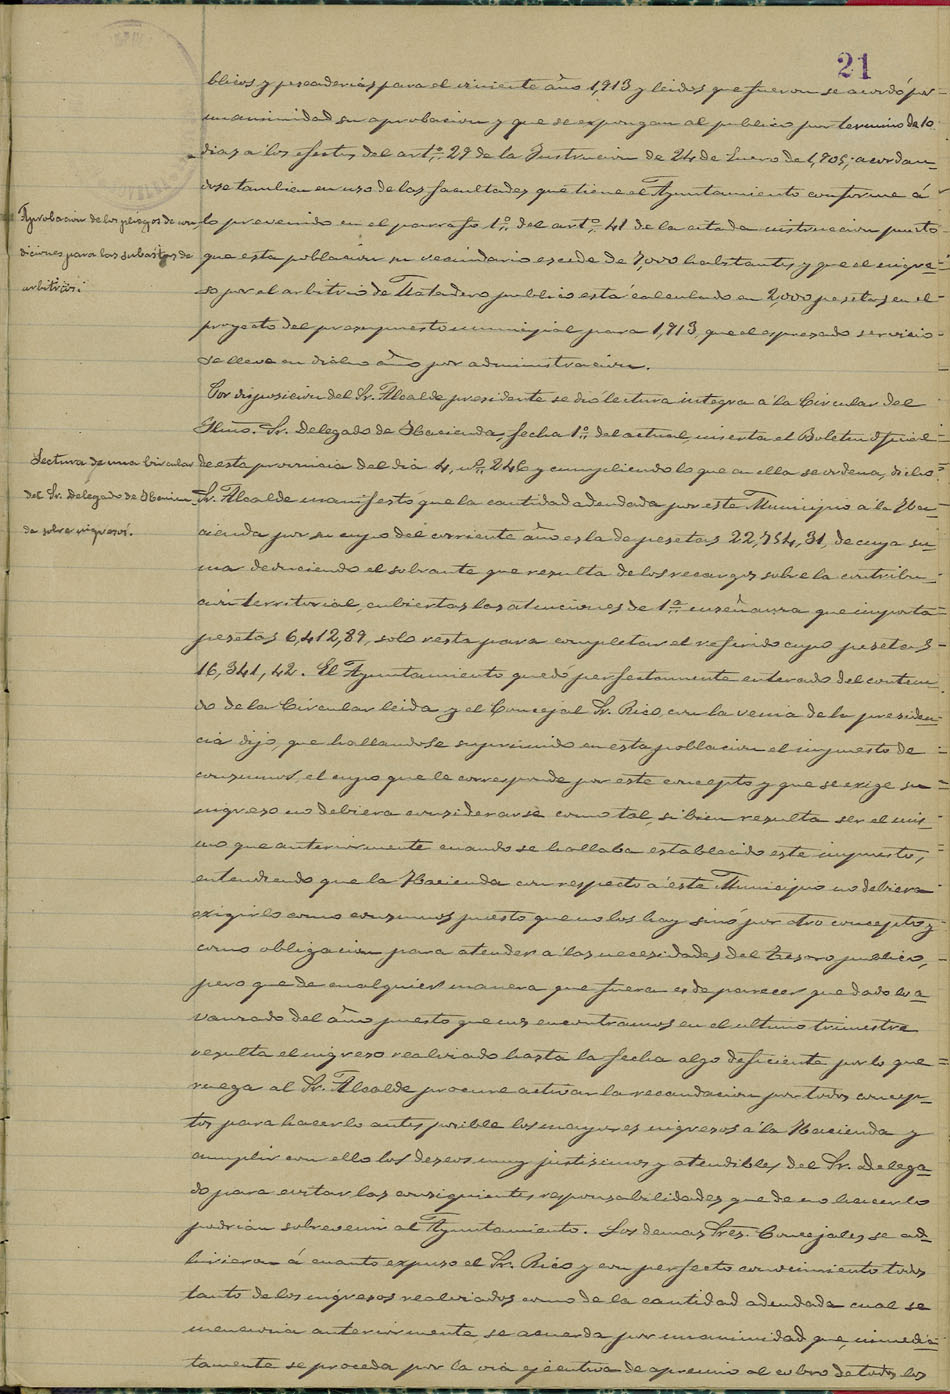 21
blicos y pescaderias para el viniente año 1,913 y leidos que fueron se acordó por
unanimidad su aprobacion y que se expongan al publico por termino de 10
dias a los efectos del artº. 29 de la Instrucion de 24 de Enero de 1,905; acordan-
dose tambien en uso de las facultades que tiene el Ayuntamiento conforme á
Aprobacion de los pliegos de con-
diciones para las subastas de
arbitrios.
lo prevenido en el parrafo 1º. del artº. 41 de la citada instrucion puesto
que esta poblacion su vecindario escede de 7,000 habitantes y que el ingre-
so por el arbitrio de Matadero publico está calculado en 2,000 pesetas en el
proyecto del presupuesto municipal para 1,913, que el espresado servicio
se lleve en dicho año por administracion.
Por disposicion del Sr. Alcalde presidente se dió lectura integra á la Circular del
Iltmo. Sr. Delegado de Hacienda, fecha 1º. del actual, inserta el Boletin Oficial
Lectura de una Circular
del Sr. Delegado de Hacien-
da sobre ingresos.
de esta provincia del dia 4, nº. 246 y cumpliendo lo que en ella se ordena, dicho
Sr. Alcalde manifestó que la cantidad adeudada por este Municipio á la Ha-
cienda por su cupo del corriente año es la de pesetas 22,754,31, de cuya su-
ma deduciendo el sobrante que resulta de los recargos sobre la contribu-
cion territorial, cubiertas las atenciones de 1ª. enseñanza que importa
pesetas 6,412,89, solo resta para completar el referido cupo pesetas
16,341,42. El Ayuntamiento quedó perfectamente enterado del conteni-
do de la Circular leida y el Concejal Sr. Rico, con la venia de la presiden-
cia dijo, que hallandose suprimido en esta poblacion el impuesto de
consumos, el cupo que le corresponde por este concepto y que se exige su
ingreso no debiera considerarse como tal, si bien resulta ser el mis-
mo que anteriormente cuando se hallaba establecido este impuesto,
entendiendo que la Hacienda con respecto á este Municipio no debiera
exigirlo como consumos puesto que no los hay sinó por otro concepto y
como obligacion para atender a las necesidades del tesoro publico,
pero que de cualquier manera que fuera es de parecer que dado lo a-
vanzado del año puesto que nos encontramos en el ultimo trimestre
resulta el ingreso realizado hasta la fecha algo deficiente por lo que
ruega al Sr. Alcalde procure activar la recaudacion por todos concep-
tos para hacer lo antes posible los mayores ingresos á la Hacienda y
cumplir con ello los deseos muy justisimos y atendibles del Sr. Delega-
do para evitar las consiguientes responsabilidades que de no hacerlo
podrian sobrevenir al Ayuntamiento. Los demas Sres. Concejales se ad-
hirieron á cuanto expuso el Sr. Rico y con perfecto conocimiento todos
tanto de los ingresos realizados como de la cantidad adeudada cual se
menciona anteriormente, se acuerda por unanimidad que, inmedia-
tamente se proceda por la via ejecutiva de apremio al cobro de todos los